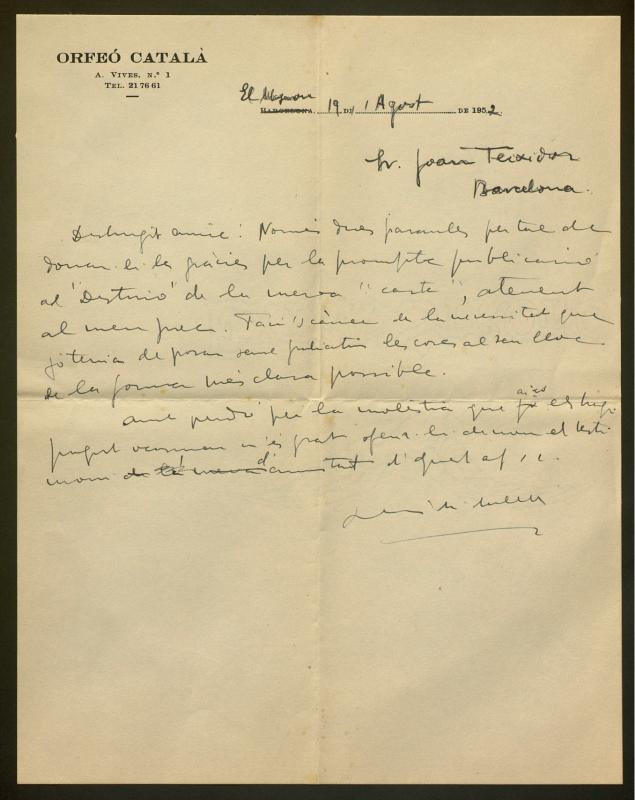 ORFEÓ CATALÀ
A. VIVES, N.º 1
TEL. 21 76 61
El Masnou
BARCELONA 19 DE Agost DE 1952.
Sr. Joan Teixidor
Barcelona.
Distingit amic: Només dues paraules per tal de
donar-li les gràcies per la prompta publicació
al "Destino" de la meva "carta", atenent
al meu prec. Faci's càrrec de la necessitat que
jo tenia de posar sense les coses al seu lloc
de la forma més clara possible.
amb perdó per la molèstia que això els hagi
pogut ocasionar m'és grat oferir-li de nou el testi
moni de la meva d'amistat d'aquest af.
Lluís M. Millet